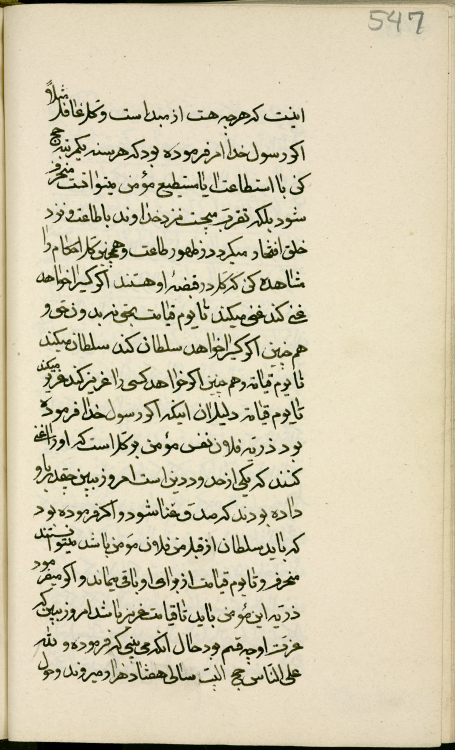 547
اینست که هر چه هست از مبداست و کل غافل مثلاً
اگر رسول خدا امر فرموده بود که هر سنه یکمرتبه حج
کن با استطاعت لا یستطیع مؤمن میتوانست منحرف
شود بلکه تقرب میجست نزد خداوند باطاعت و نزد
خلق افتخار میکرد در ظهور طاعت و همچنین کل احکام را
مشاهده کن که کل در قبضهٔ او هستند اگر کسیرا خواهد
غنی کند غنی میکند تا یوم قیامت بحتی نرید و نحی و
همچنین اگر کسیرا خواهد سلطان کند سلطان میکند
تا یوم قیامة و همچنین اگر خواهد کسی را عزیز کند عزیز میکند
تا یوم قیامة دلیل آن اینکه اگر رسول خدا فرموده
بود ذریه فلان نفس مؤمن بر کل است که او را غنی
کنند که یکی از حدود دین است امروز ببین چقدر باو
داده بودند که صدق غنا شود و اگر فرموده بود
که باید سلطان از قبل من فلان مؤمن باشد میتوانستند
منحرف و تا یوم قیامت از برای او باقی میماند و اگر میفرمود
ذریه این مؤمن باید تا قیامت عزیز باشد امروز ببین که
عزت او چه قسم بود حال آنکه می بینی که فرموده و لله
علی الناس حج البیت سالی هفتاد هزار میروند و حول